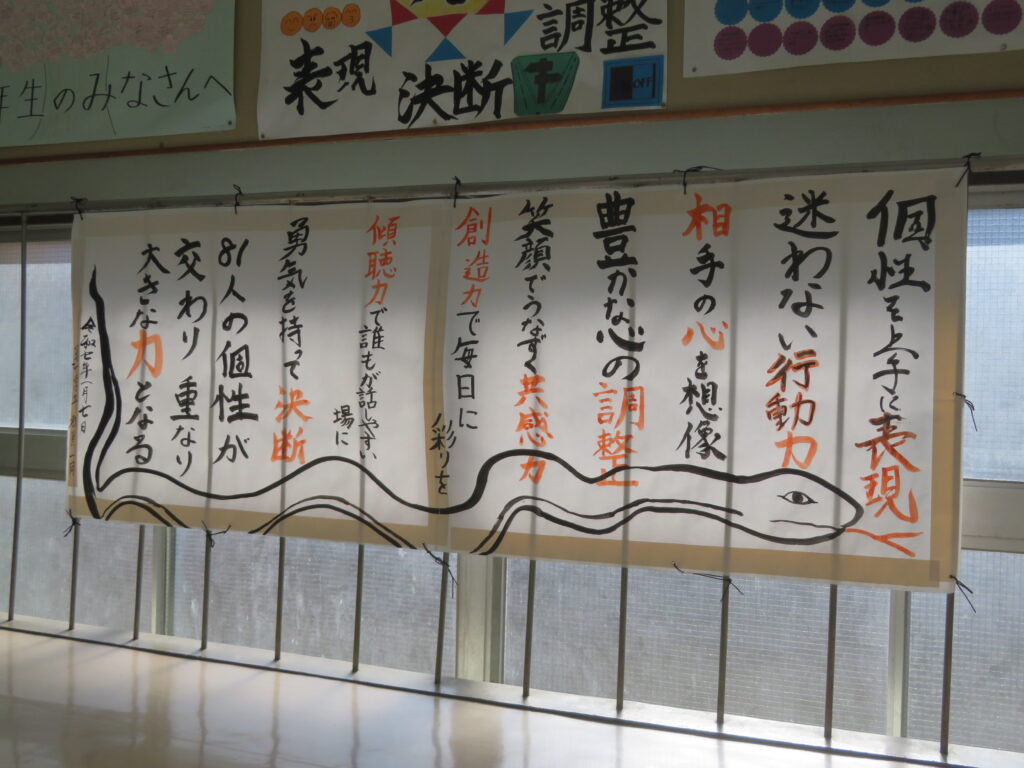 年生のみなさんへ
表現
決断
調整
OFF
個性を上手に表現
迷わない行動力
相手の心を想像
豊かな心の調整
笑顔でうなずく共感力
創造力で毎日に
彩りを
傾聴力で誰もが話やすい
場に
勇気を持って決断
81人の個性が
交わり重なり
大きな力となる
令和七年一月七日